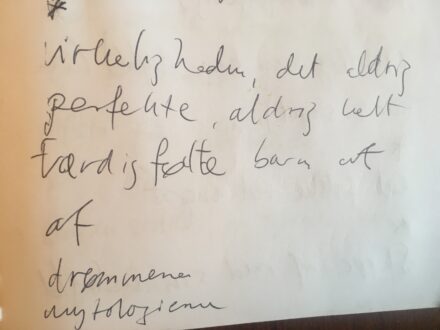 *
virkeligheden, det aldrig
perfekte, aldrig helt
færdigfødte barn af
af
drømmene
mytologierne